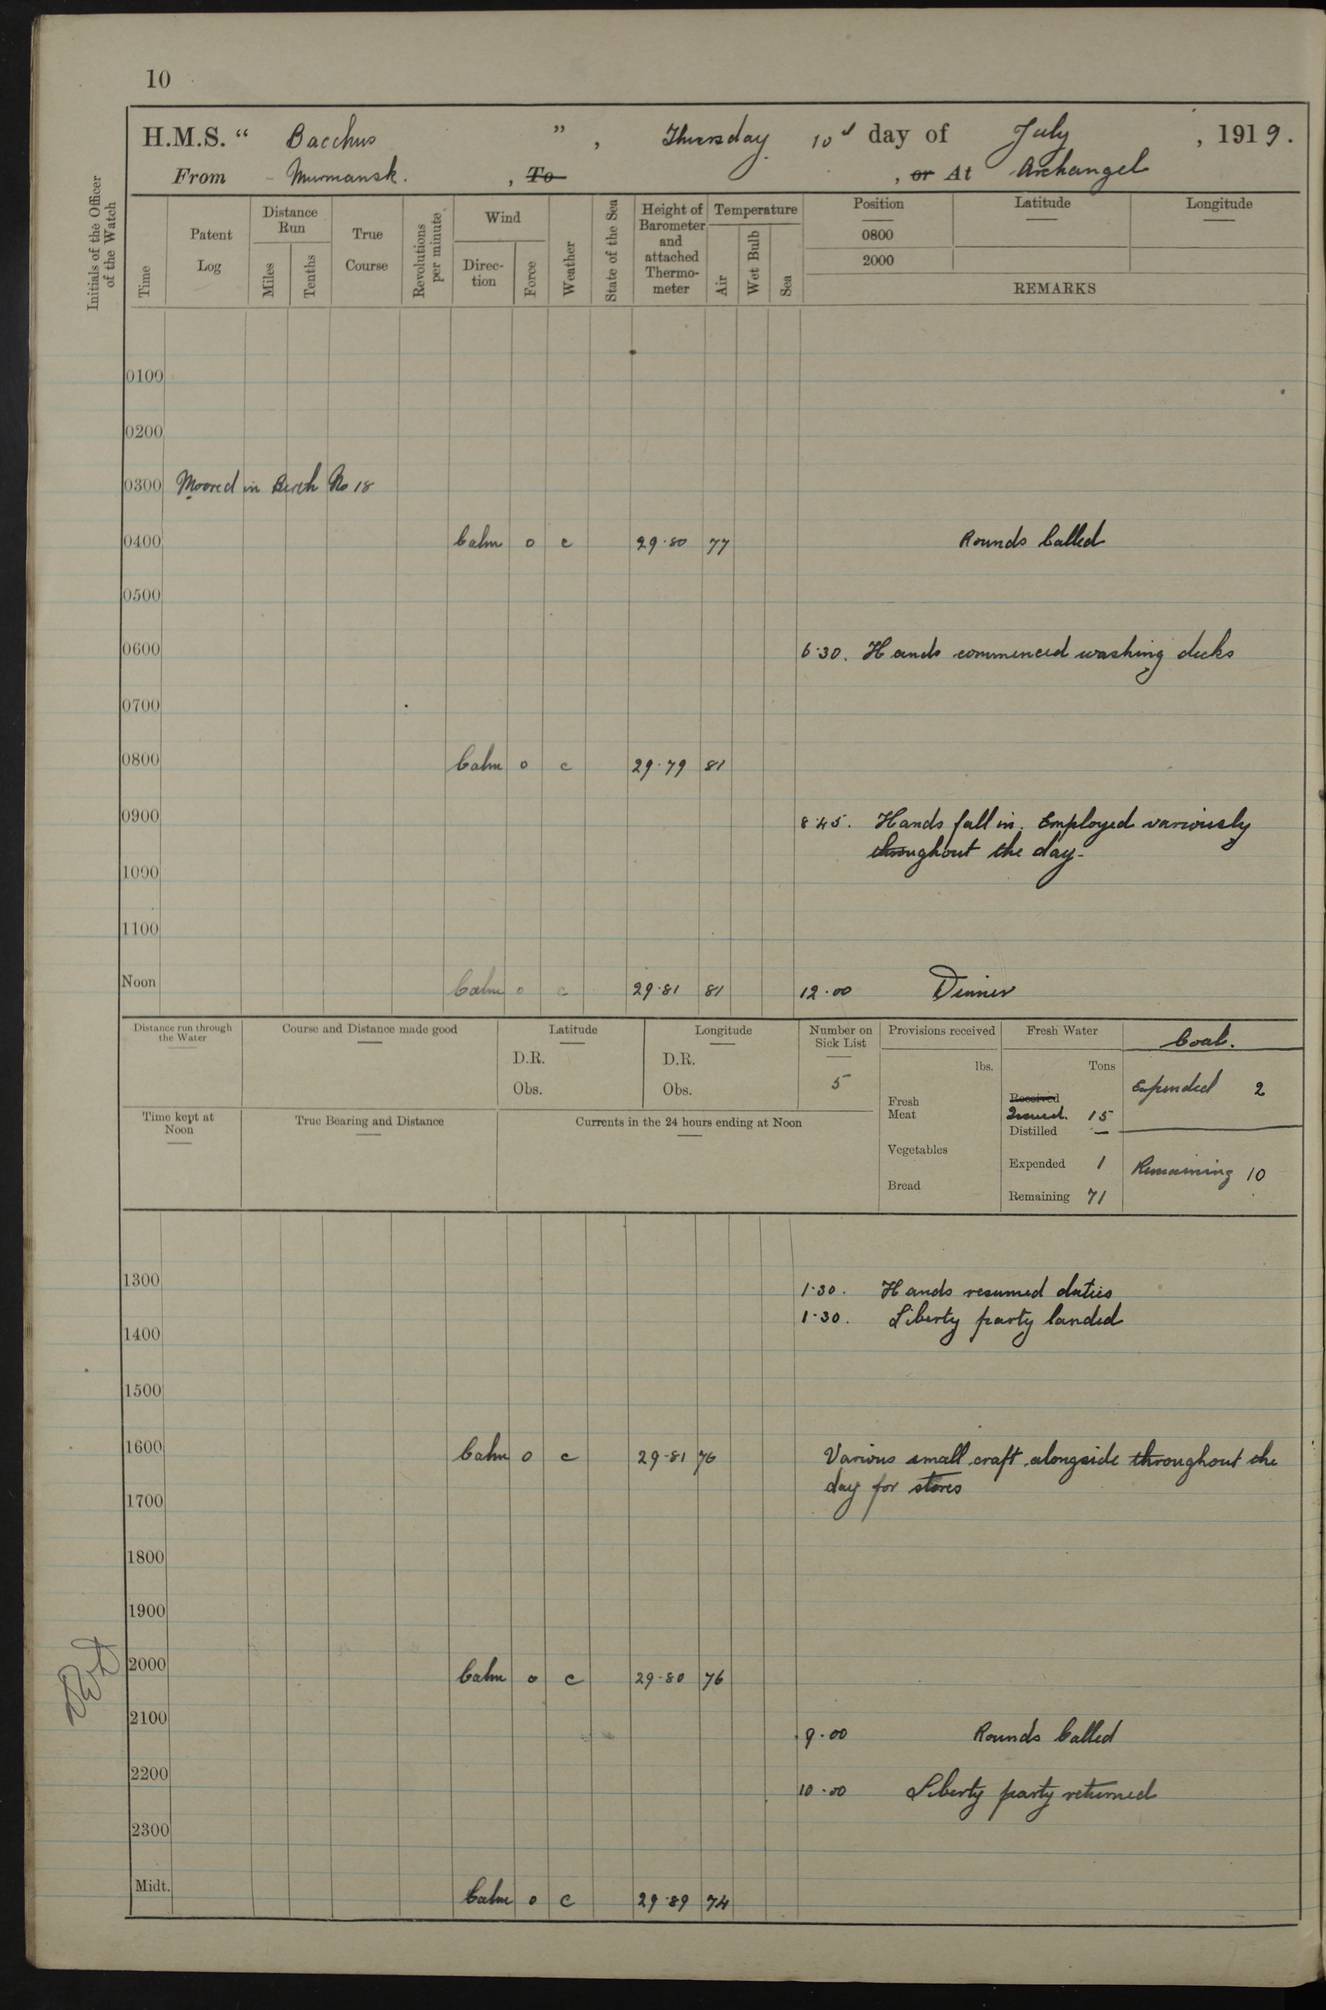 10
H.M.S. “ Bacchus ” , Thursday 10th day of July , 1919.
From - Murmansk. , To , or At Archangel
Initials of the Officer of the Watch
Time
Patent Log
Distance Run
Miles
Tenths
True Course
Revolutions per minute
Wind
Direc-tion
Force
Weather
State of the Sea
Height of Barometer and attached Thermo-meter
Temperature
Air
Wet Bulb
Sea
Position
Latitude
Longitude
0800
2000
REMARKS
0100
0200
0300 Moored in Berth No 18
0400 Calm 0 c 29.80 77 Rounds Called
0500
0600 6.30. Hands commenced washing decks
0700
0800 Calm 0 c 29.79 81
0900 8.45. Hands fall in. Employed variously
throughout the day-
1000
1100
Noon Calm 0 c 29.81 81 12.00 Dinner
Distance run through the Water
Course and Distance made good
Latitude
D.R.
Obs.
Longitude
D.R.
Obs.
Number on Sick List
5
Provisions received
lbs.
Fresh Meat
Vegetables
Bread
Fresh Water
Tons
Received
Issued. 15
Distilled —
Expended 1
Remaining 71
Coal.
Expended 2
Remaining 10
Time kept at Noon
True Bearing and Distance
Currents in the 24 hours ending at Noon
1300 1.30. Hands resumed duties
1.30. Liberty party landed
1400
1500
1600 Calm 0 c 29.81 76 Various small craft alongside throughout the
day for stores
1700
1800
1900
2000 Calm 0 c 29.80 76
2100 9.00 Rounds Called
2200 10.00 Liberty party returned
2300
Midt. Calm 0 c 29.89 74